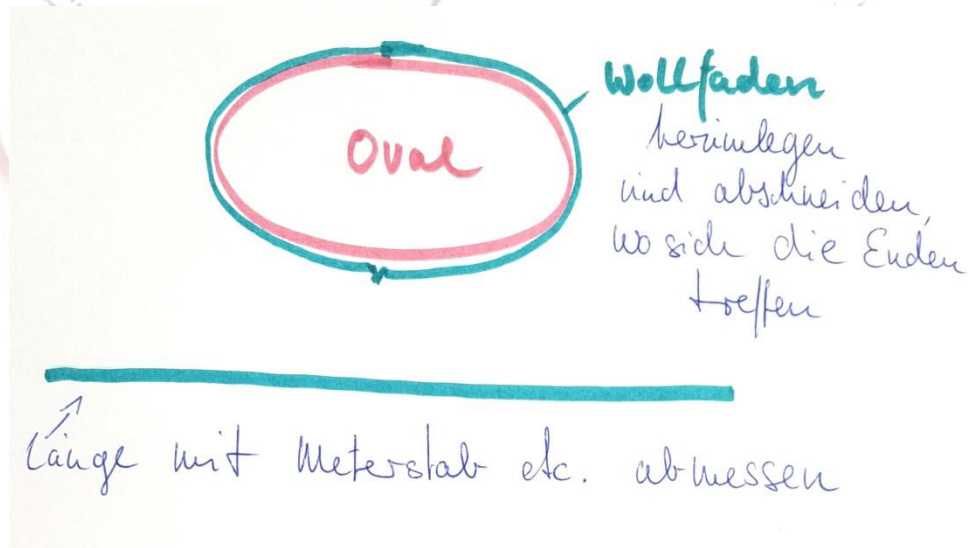 Oval
Wollfaden
herumlegen
und abschneiden,
wo sich die Enden
treffen
Länge mit Meterstab etc. abmessen